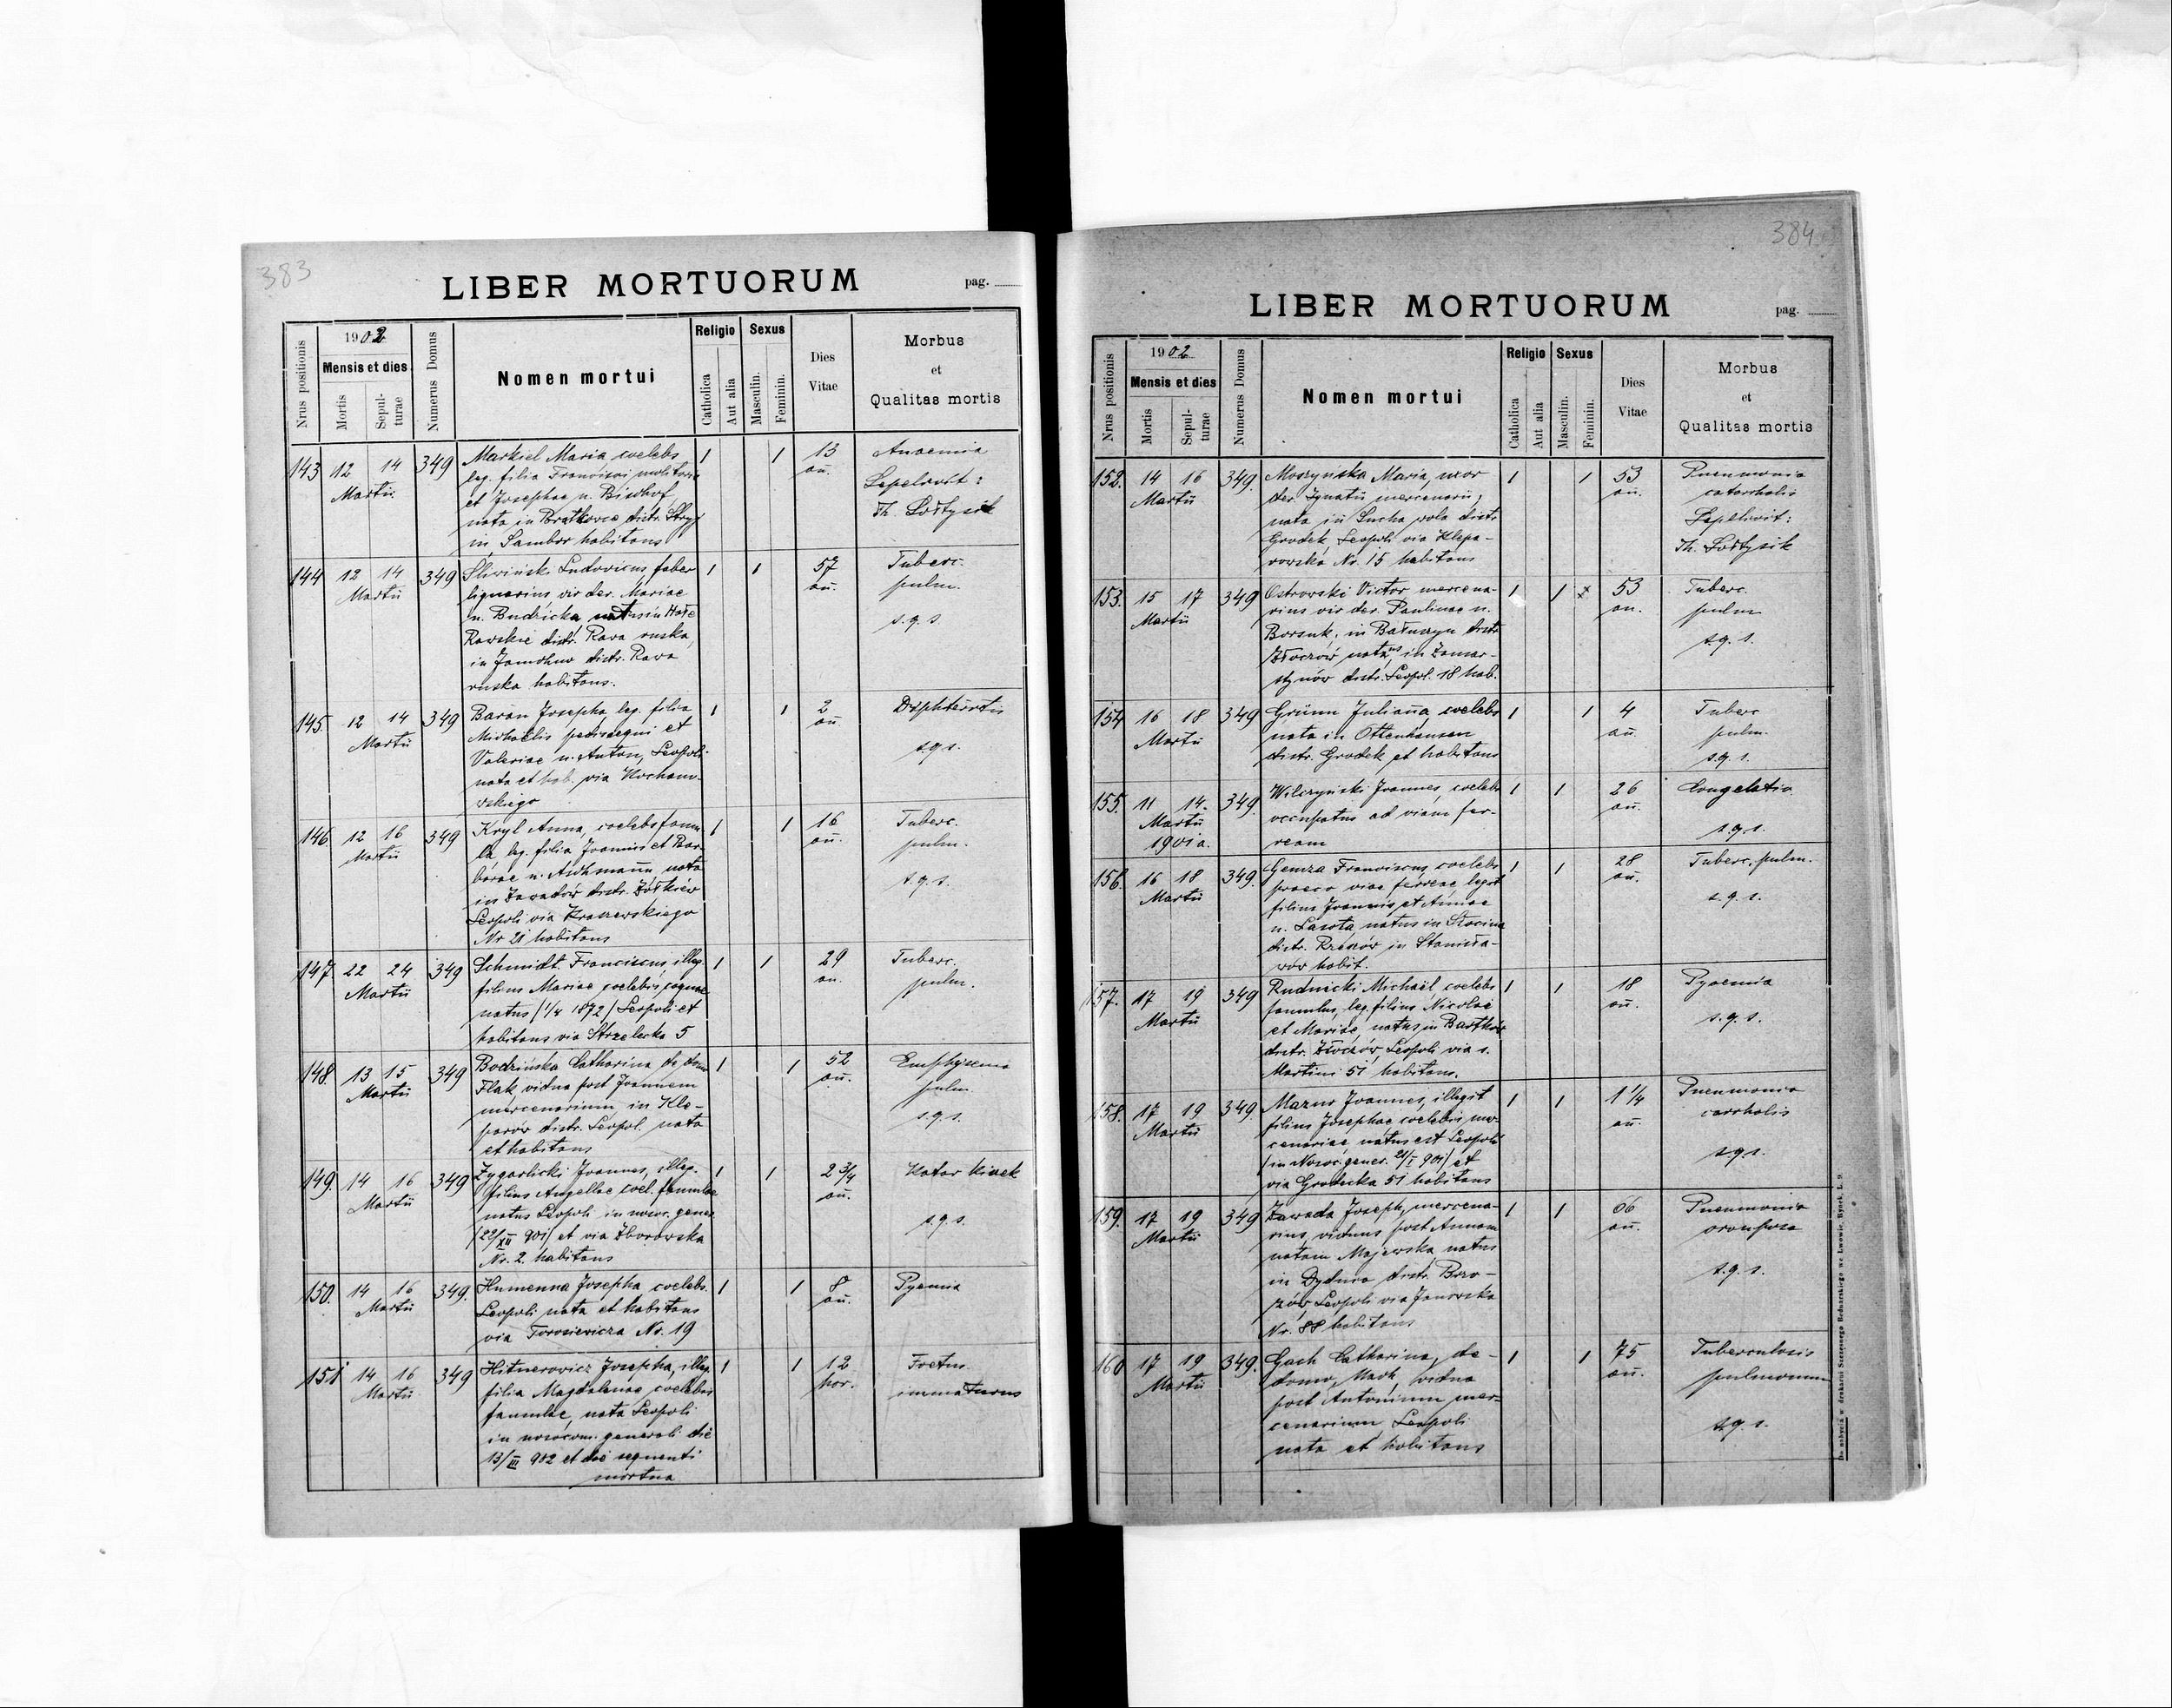 383
LIBER MORTUORUM
pag.
Nrus positionis
1902
Mensis et dies
Mortis
Sepulturae
Numerus Domus
Nomen mortui
Religio
Catholica
Aut alia
Sexus
Masculin.
Feminin.
Dies Vitae
Morbus
et
Qualitas mortis
143 12 14 Martii 349 1 1 13 an.
Markiel Maria coelebs
leg. filia Francisci molitoris
et Josephae n. Bischof,
nata in Bratkowce distr. Stryj
in Sambor habitans
Anaemia
Sepelivit:
Th. Sołtysik
144 12 14 Martii 349 1 1 57 an.
Śliwiński Ludovicus faber
lignarius vir der. Mariae
n. Budzicka natus in Hołe
Rawskie distr. Rawa ruska,
in distr. Rawa
ruska habitans.
Tuberc.
pulm.
s.q.s.
145. 12 14 Martii 349 1 1 2 an.
Baran Josepha leg. filia
Michaëlis pedissequi et
Valeriae n. Anton, Leopoli
nata et hab. via Kochano-
wskiego
Diphteritis
s.q.s.
146 12 16 Martii 349 1 1 16 an.
Kryl Anna, coelebs famu-
la, leg. filia Joannis et Bar-
barae n. Aichmann nata
in Zawadów distr. Żółkiew
Leopoli via Kraszewskiego
Nr 21 habitans
Tuberc.
pulm.
s.q.s.
147 22 24 Martii 349 1 1 29 an.
Schmidt Franciscus, illeg.
filius Mariae coelebis coquae
natus (1/4 1872) Leopoli et
habitans via Strzelecka 5
Tuberc.
pulm.
148. 13 15 Martii 349 1 1 52 an.
Bodzińska Catharina de domo
Flak, vidua post Joannem
mercenarium, in Kle-
parow distr. Leopol. nata
et habitans
Emphysema
pulm.
s.q.s.
149. 14 16 Martii 349 1 1 2 3/4 an.
Zygarlicki Joannes, illeg.
filius Angellae coel. famulae
natus Leopoli in nosoc. gener.
(22/XII 901) et via Zborowska
Nr. 2. habitans
Katar kiszek
s.q.s.
150. 14 16 Martii 349. 1 1 8 an.
Humenna Josepha coelebs.
Leopoli nata et habitans
via Torosiewicza Nr. 19
Pyemia
151 14 16 Martii 349 1 1 12 hor.
Hitnerowicz Josepha, illeg.
filia Magdalenae coelebis
famulae, nata Leopoli
in nosocom. generali die
13/III 902 et die sequenti
mortua
Foetus
immaturus
384
LIBER MORTUORUM
pag.
Nrus positionis
1902
Mensis et dies
Mortis
Sepulturae
Numerus Domus
Nomen mortui
Religio
Catholica
Aut alia
Sexus
Masculin.
Feminin.
Dies Vitae
Morbus
et
Qualitas mortis
152. 14 16 Martii 349. 1 1 53 an.
Moszyńska Maria, uxor
der. Ignatii mercenarii,
nata in Sucha wola distr.
Grodek Leopoli via Klepa-
rowska Nr. 15 habitans
Pneumonia
catarrhalis
Sepelivit:
Th. Sołtysik
153. 15 17 Martii 349 1 1 x 53 an.
Ostrowski Victor mercena-
rius vir der. Paulinae n.
Borsuk, in Bałuczyn distr.
Złoczów natus, in Zamar-
stynów distr. Leopol. 18 hab.
Tuberc.
pulm
s.q.s.
154 16 18 Martii 349 1 1 4 an.
Grünn Julianna coelebs
nata in Ottenhausen
distr. Grodek et habitans
Tuberc
pulm.
s.q.s.
155. 11 14. Martii 349. 1 1 26 an.
190
Wilczyński Joannes, coelebs
occupatus ad viam fer-
ream
Congelatio
s.q.s.
156. 16 18 Martii 349. 1 1 28 an.
Gemza Franciscus coelebs
praeco viae ferreae legit
filius Joannis et Annae
n. Lasota, natus in Słocina
distr. Rzeszów in Stanisła-
wów habit.
Tuberc. pulm.
s.q.s.
157. 17 19 Martii 349 1 1 18 an.
Rudnicki Michaël coelebs
famulus, leg. filius Nicolai
et Mariae, natus in Bartków
distr. Złoczów, Leopoli via s.
Martini 51 habitans.
Pyaemia
s.q.s.
158. 17 19 Martii 349 1 1 1 1/4 an.
Mazur Joannes, illegit
filius Josephae coelebis mer-
cenariae, natus est Leopoli
(in Nosoc. gener. 21/I 901) et
via Grodecka 51 habitans
Pneumonia
carrhalis
s.q.s.
159. 17 19 Martii 349 1 1 66 an.
Zawada Joseph, mercena-
rius, viduus post Annam
natam Majewska, natus
in Dydnia distr. Brzo-
zów Leopoli via Janowska
Nr. 88 habitans
Pneumonia
crouposa
s.q.s.
160 17 19 Martii 349. 1 1 75 an.
Gach Catharina, de-
domo, Mark, vidua
post Antonium mer-
cenarium, Leopoli
nata et habitans
Tuberculosis
pulmonum
s.q.s.
Do nabycia w drukarni Szczęsnego Bednarskiego we Lwowie, Rynek, L. 9.